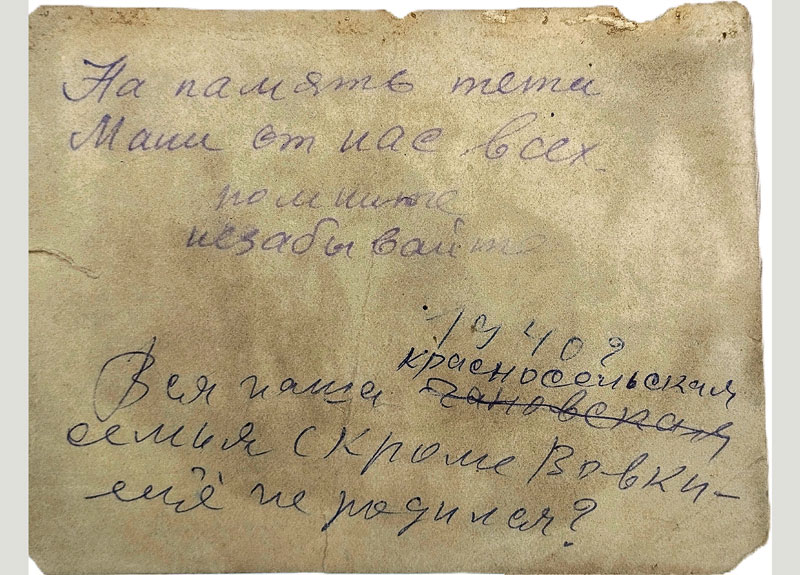 На память тети
Мани от нас всех
помните
незабывайте
1940г
красносельская
Вся наша чановская
семья (кроме Вовки -
ещё не родился?